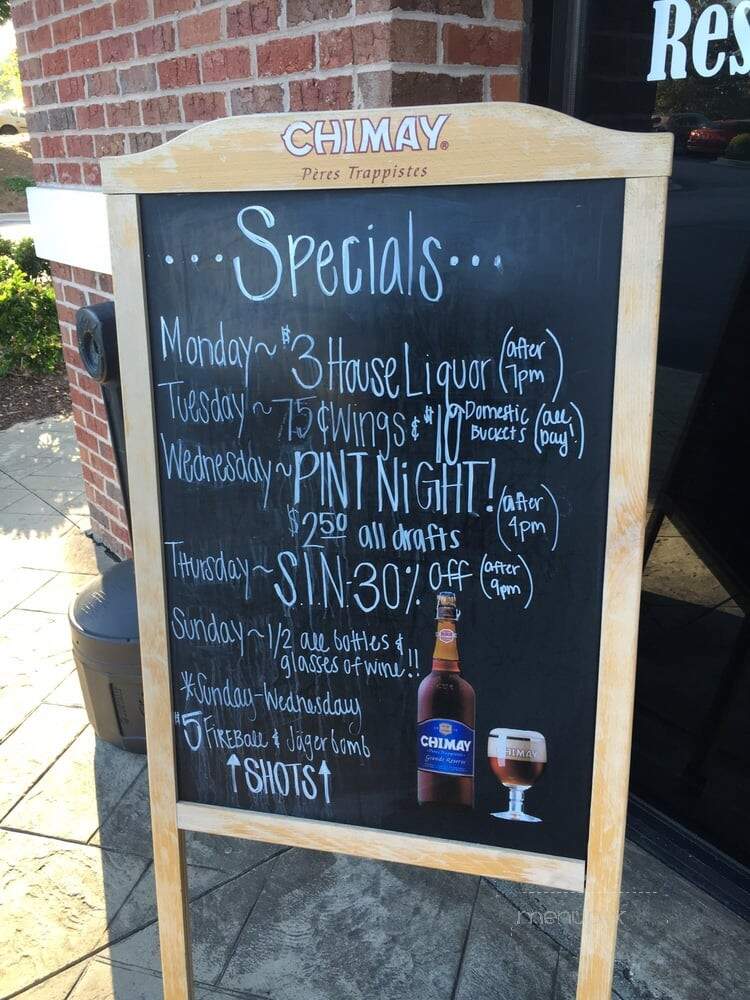 Res
CHIMAY®
Pères Trappistes
...Specials...
Monday~ $3 House Liquor (after 7pm)
Tuesday~ 75¢ Wings & $10 Domestic Buckets (all Day!)
Wednesday~ PINT NiGHT!
$2.50 all drafts (after 4pm)
Thursday~ S.I.N. 30% Off (after 9pm)
Sunday~ 1/2 all bottles &
glasses of wine!!
*Sunday-Wednesday
$5 FIREBall & Jägerbomb
↑SHOTS↑
CHIMAY
Pères Trappistes
Grande Réserve
CHIMAY